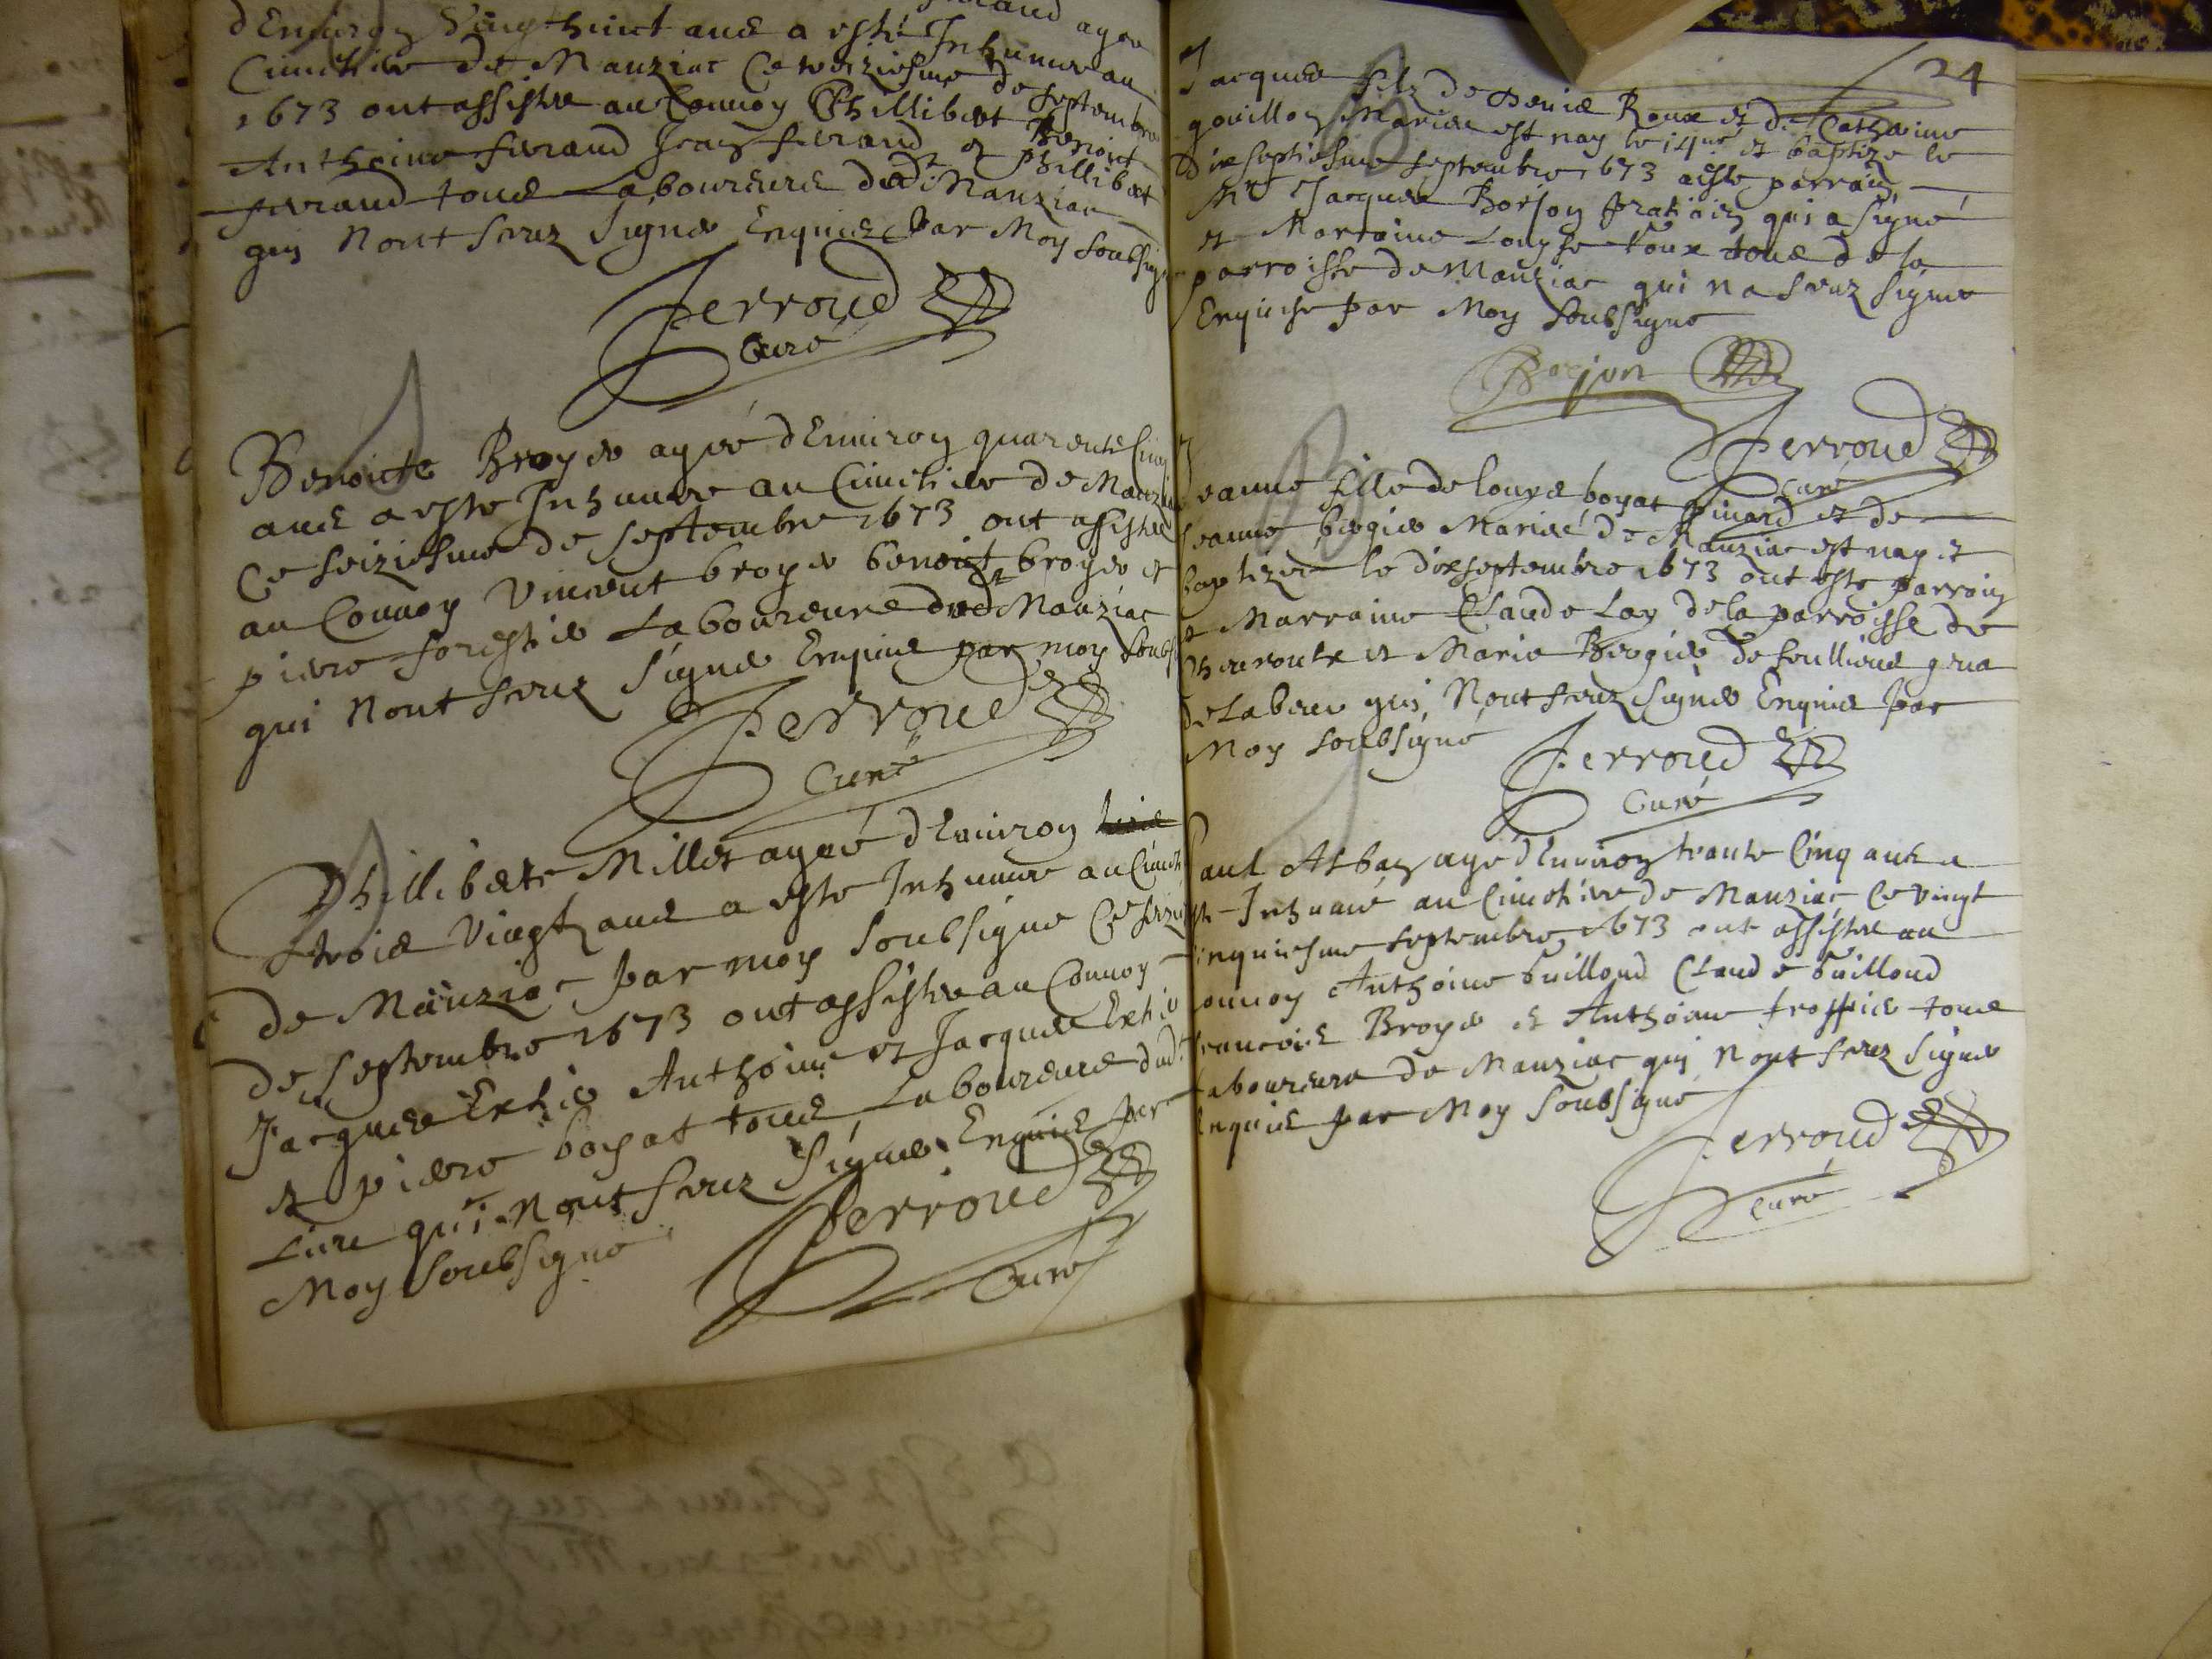 ferrand agee
d'Environ Vingt huict ans a esté Inhumee au
Cimetiere de Manziac Ce treiziesme de septembre
1673 ont assistee au Convoy Phillibert Benoict
Anthoine ferrand Jean ferrand et phillibert
ferrand tous Laboureurs dud.t Manziac
qui Nont sceuz Signer Enquis par Moy soubsigne
Perroud
Curé
Benoicte Broyer agee d'Environ quarente Cinq
ans a esté Inhumee au Cimetiere de Manziac
Ce seiziesme de septembre 1673 ont assistee
au Convoy Vincent broyer benoist broyer et
pierre forestier Laboureurs dud.t Manziac
qui Nont sceuz Signer Enquis par moy soubs
Perroud
Curé
Philliberte Millet agee d'Environ
trois Vingt ans a esté Inhumee au Cimet
de Manziac par moy soubsigne Ce seizi
de septembre 1673 ont assistee au Convoy
Jacques Extier Anthoine et Jacques Extier
et pierre boyat tous Laboureurs dud.t
Lieu qui Nont sceuz Signer Enquis par
Moy soubsigne
Perroud
Curé
24
Jacques filz de Denis Roux et de Catherine
gouillon Mariee est nay le 14me et baptize le
dixseptiesme septembre 1673 a esté parrain
Mre Jacques Borjon praticien qui a signé
et Marraine Louyse Roux tous de la
parroisse de Manziac qui na sceuz Signer
Enquise par Moy soubsigne
Borjon
Perroud
Curé
Jeanne fille de louys boyat pinard et de
Jeanne bergier Mariee de Manziac est nay et
baptizee le dixseptembre 1673 ont esté parrain
et Marraine Claude Lay de la parroisse de
et Marie Bergier de
qui Nont sceuz Signer Enquis par
Moy soubsigné
Perroud
Curé
Paul Alban agé d'Environ trante Cinq ans a
esté Inhumé au Cimetiere de Manziac Ce vingt
cinquiesme septembre 1673 ont assistee au
Convoy Anthoine builloud Claude builloud
francois Broyer et Anthoine troffier tous
Laboureurs de Manziac qui Nont sceuz Signer
Enquis par Moy soubsigné
Perroud
curé